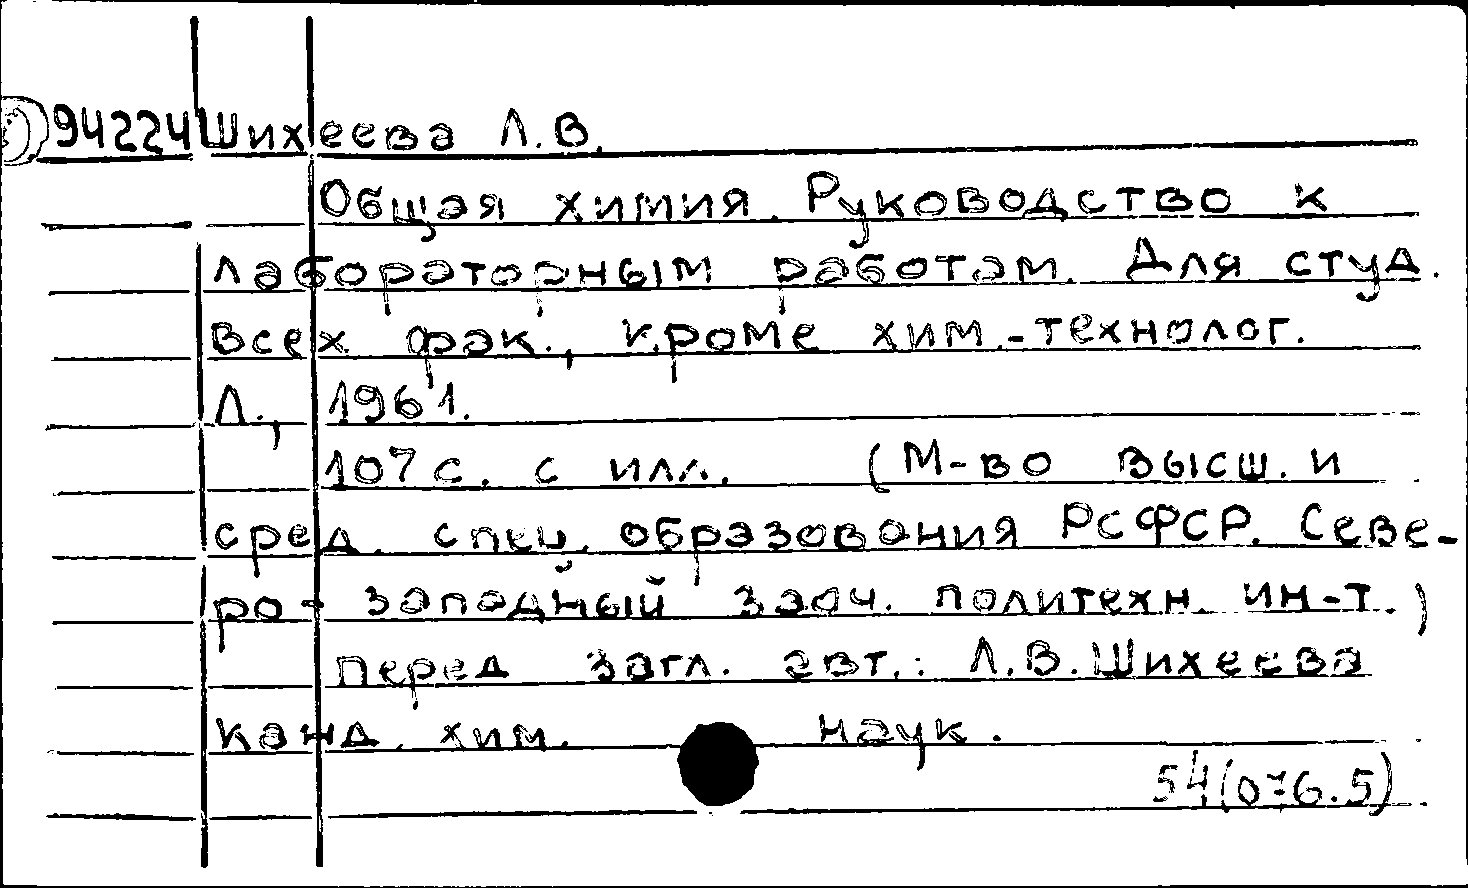 94224 Шихеева Л.В.
Общая химия. Руководство к
лабораторным работам. Для студ.
всех фак., кроме хим.-технолог.
Л., 1961.
107 с. с илл. (М-во высш. и
сред. спец. образования РСФСР. Севе-
ро-западный заоч. политехн. ин-т.)
перед загл. авт.: Л.В. Шихеева
канд. хим. наук.
54(076.5)